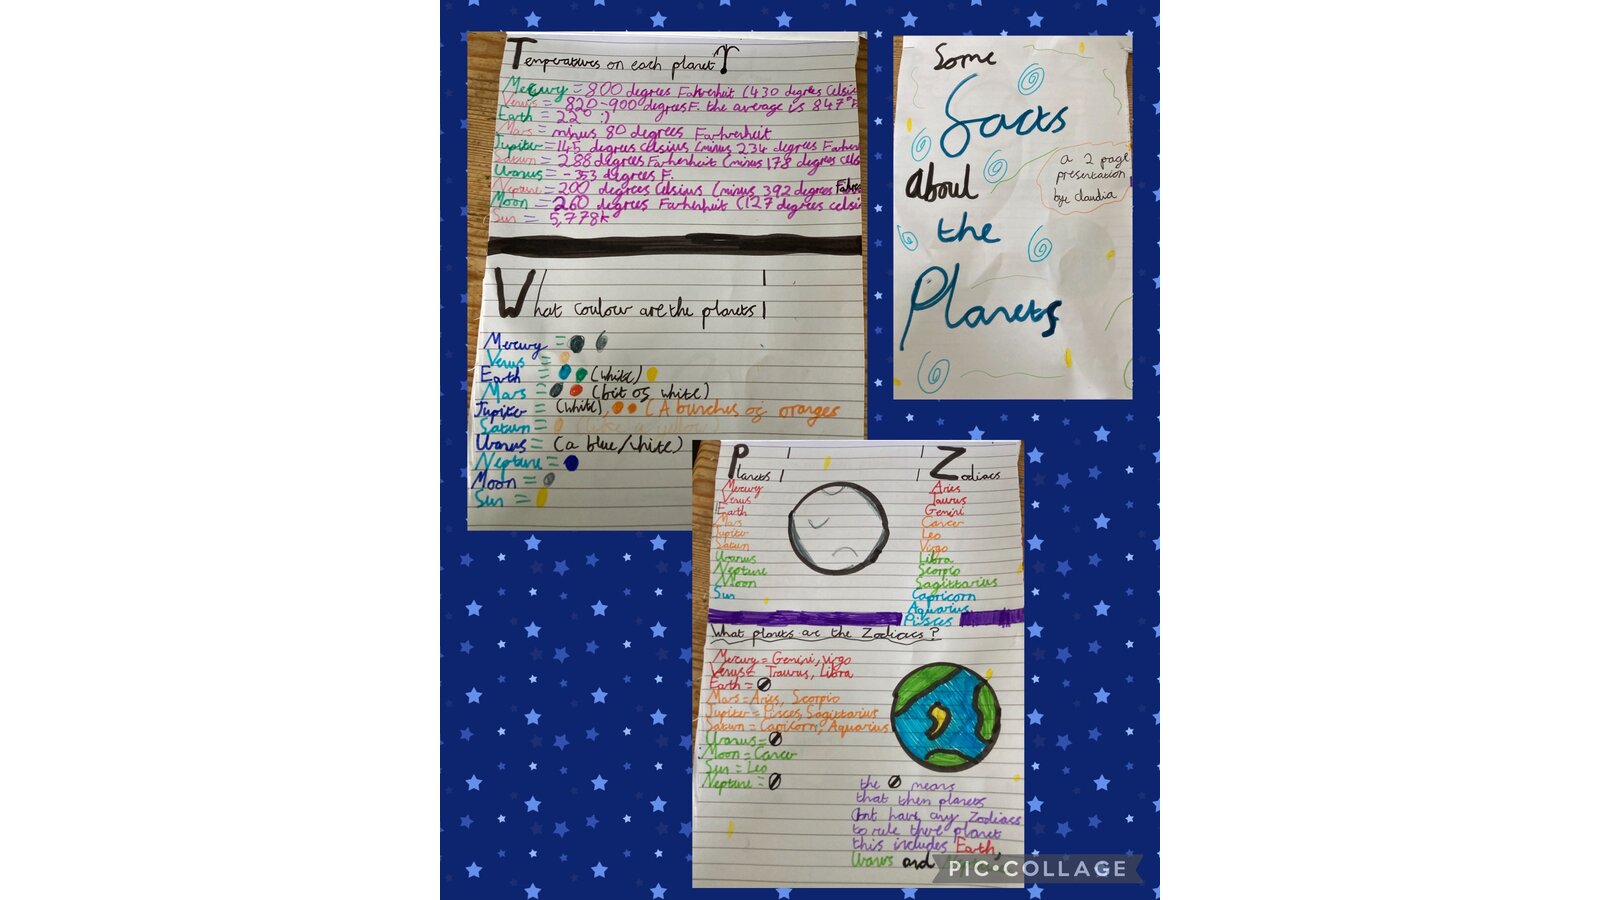 Temperatures on each planet
Mercury = 800 degrees Fahrenheit (430 degrees Celsi
Venus = 820-900 degrees F. the average is 847°F
Earth = 22° :)
Mars = minus 80 degrees Farhrenheit
Jupiter = 145 degrees celsius (minus 234 degrees Fahren
Saturn = 288 degrees Farhenheit (minus 178 degrees cels
Uranus = -353 degrees F.
Neptune = 200 degrees Celsius (minus 392 degrees
Moon = 260 degrees Farhenheit (127 degrees celsi
Sun = 5,778k
What coulour are the planets
Mercury =
Venus =
Earth = (white)
Mars = (bit of white)
Jupiter = (white), (A bunches of oranges
Saturn =
Uranus = (a blue/white)
Neptune =
Moon =
Sun =
Some
Facts
about
the
Planets
a 2 page
presentation
bye claudia
Planets
Mercury
Venus
Earth
Mars
Jupiter
Saturn
Uranus
Neptune
Moon
Sun
Zodiacs
Aries
Taurus
Gemini
Cancer
Leo
Virgo
Libra
Scorpio
Sagittarius
Capricorn
Aquarius
Pisces
What planets are the Zodiacs?
Mercury = Gemini, virgo
Venus = Traurus, Libra
Earth =
Mars = Aries, Scorpio
Jupiter = Pisces, Sagittarius
Saturn = Capricorn, Aquarius
Uranus =
Moon = Cancer
Sun = Leo
Neptune =
the means
that then planets
dont have any Zodiacs
to rule there planet
this includes Earth,
Uranus and
PIC•COLLAGE